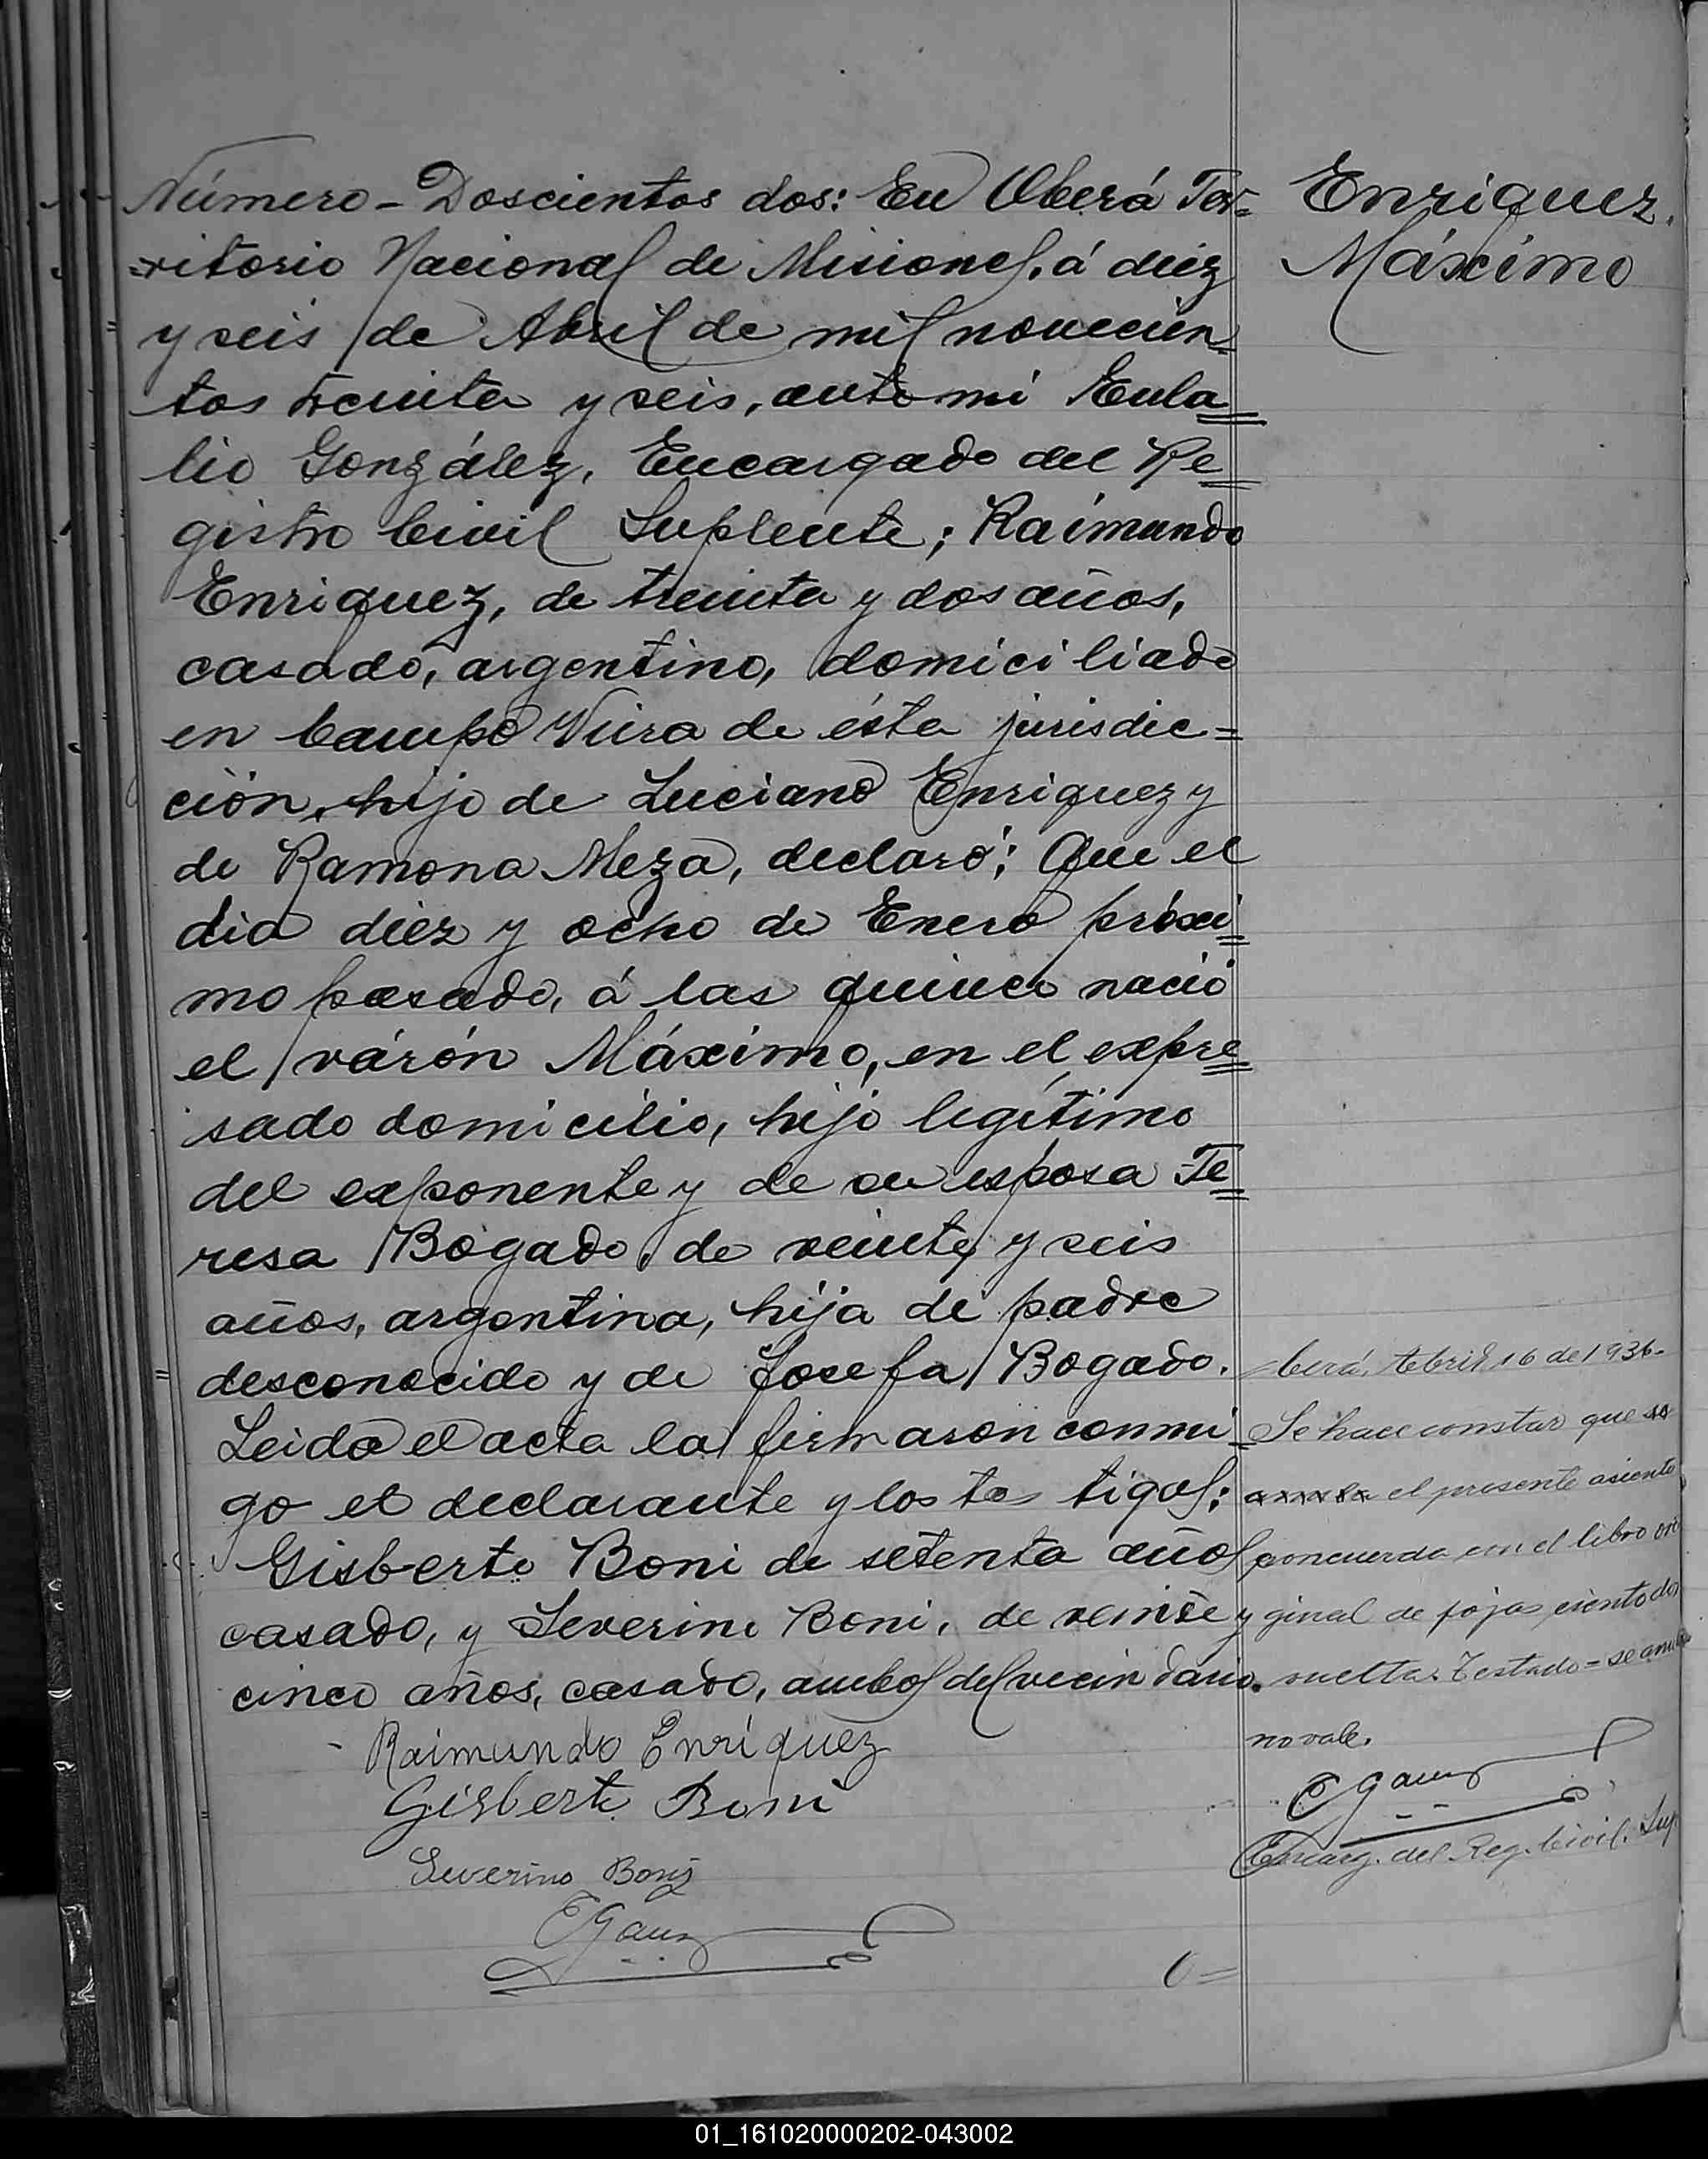 Número - Doscientos dos: En Oberá Ter=
=ritorio Nacional de Misiones, á diéz
y seis de Abril de mil novecien=
tos treinta y seis, ante mi Eula=
lio González, Encargado del Re=
gistro Civil Suplente; Raimundo
Enriquez, de treinta y dos años,
casado, argentino, domiciliado
en Campo Viera de ésta jurisdic=
ción, hijo de Luciano Enriquez y
de Ramona Meza, declaró: Que el
dia diez y ocho de Enero próxi=
mo pasado, á las quince nació
el várón Máximo, en el expre=
sado domicilio, hijo legítimo
del exponente y de su esposa Te=
resa Bogado, de veinte y seis
años, argentina, hija de padre
desconocido y de Josefa Bogado.
Leida el acta la firmaron conmi=
go el declarante y los testigos:
Gisberto Boni de setenta años
casado, y Severino Boni, de veinte y
cinco años, casado, ambos del vecindario.
Raimundo Enríquez
Gisberto Boni
Severino Boni
Enriquez,
Máximo
berá, Abril 16 de 1936-
Se hace constar que
el presente asiento
concuerda con el libro ori
ginal de fojas ciento dos
vuelta. Testado = se
no vale.
Encarg. del Reg. Civil. Sup.
01_161020000202-043002